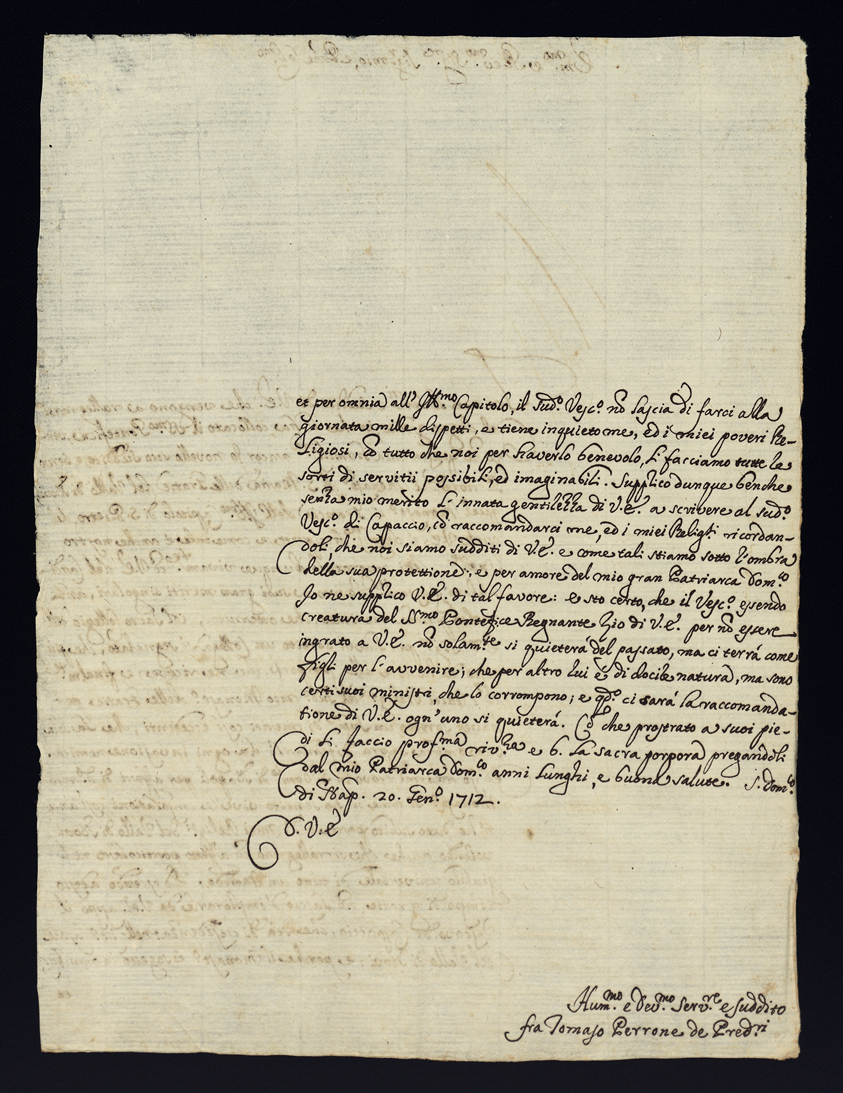 et per omnia all' Ill.mo Capitolo, il sud.o Vesc.o nõ lascia di farci alla
giornata mille dispetti, e tiene inquieto me, ed i miei poveri Re-
ligiosi, cõ tutto che noi per haverlo benevolo, li facciamo tutte le
sorti di servitii possibili, ed imaginabili. Supplico dunque benche
senza mio merito l'innata gentilezza di V.E. a scrivere al sud.o
Vesc.o di Capaccio, cõ raccomandarci me, ed i miei Religi. ricordan-
doli, che noi siamo sudditi di V.E. e come tali stiamo sotto l'ombra
della sua protettione, e per amore del mio gran Patriarca Dom.co
Io ne supplico V.E. di tal favore: e sto certo, che il Vesc.o essendo
creatura del SS.mo Pontefice Regnante Zio di V.E. per nõ essere
ingrato a V.E. nõ solam.te si quieterá del passato, ma ci terrá come
figli per l'avvenire; che per altro lui è di docile natura, ma sono
certi suoi ministri, che lo corrompono; e ci sará la raccomanda-
tione di V.E. ogn'uno si quieterá. Cõ che prostrato a suoi pie-
di li faccio prof.ma riv.za e b. la sacra porpora pregandoli
dal mio Patriarca Dom.co anni lunghi, e buona salute. S. Dom.co
di Nap. 20. Gen.o 1712.
D. V.E.
Hum.mo e Dev.mo Serv.re e suddito
fra Tomaso Perrone de Pred.ri